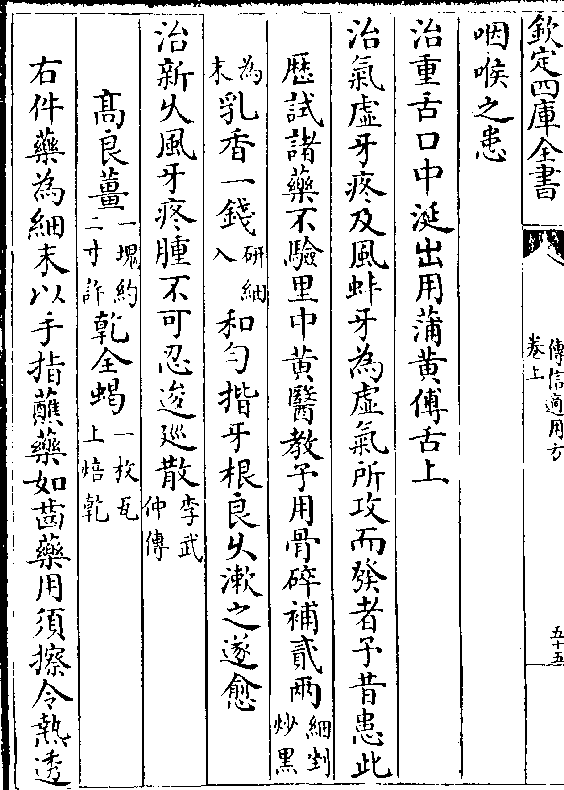 欽定四庫全書
傳信適用方
卷上
五十五
咽喉之患
治重舌口中涎出用蒲黃傅舌上
治氣虛牙疼及風蚛牙為虛氣所攻而發者予昔患此
歷試諸藥不驗里中黃醫教予用骨碎補貳兩細剉炒黑
為末乳香一錢研細入和勻揩牙根良久漱之遂愈
治新久風牙疼腫不可忍逡廵散李武仲傳
髙良薑一塊約二寸許乾全蝎一枚瓦上焙乾
右件藥為細末以手指蘸藥如齒藥用須擦令熱透